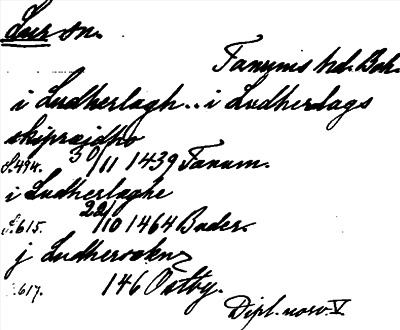 Lur sn.
Tanums hd. Boh.
i Ludherlagh.. i Ludherlags
skipræidho
S. 494. 30/11 1439 Tanum.
i Ludherlaghe
S. 615. 22/10 1464 Bader.
j Ludhersokn
S. 617. 146 Ostby.
Dipl. norv. V